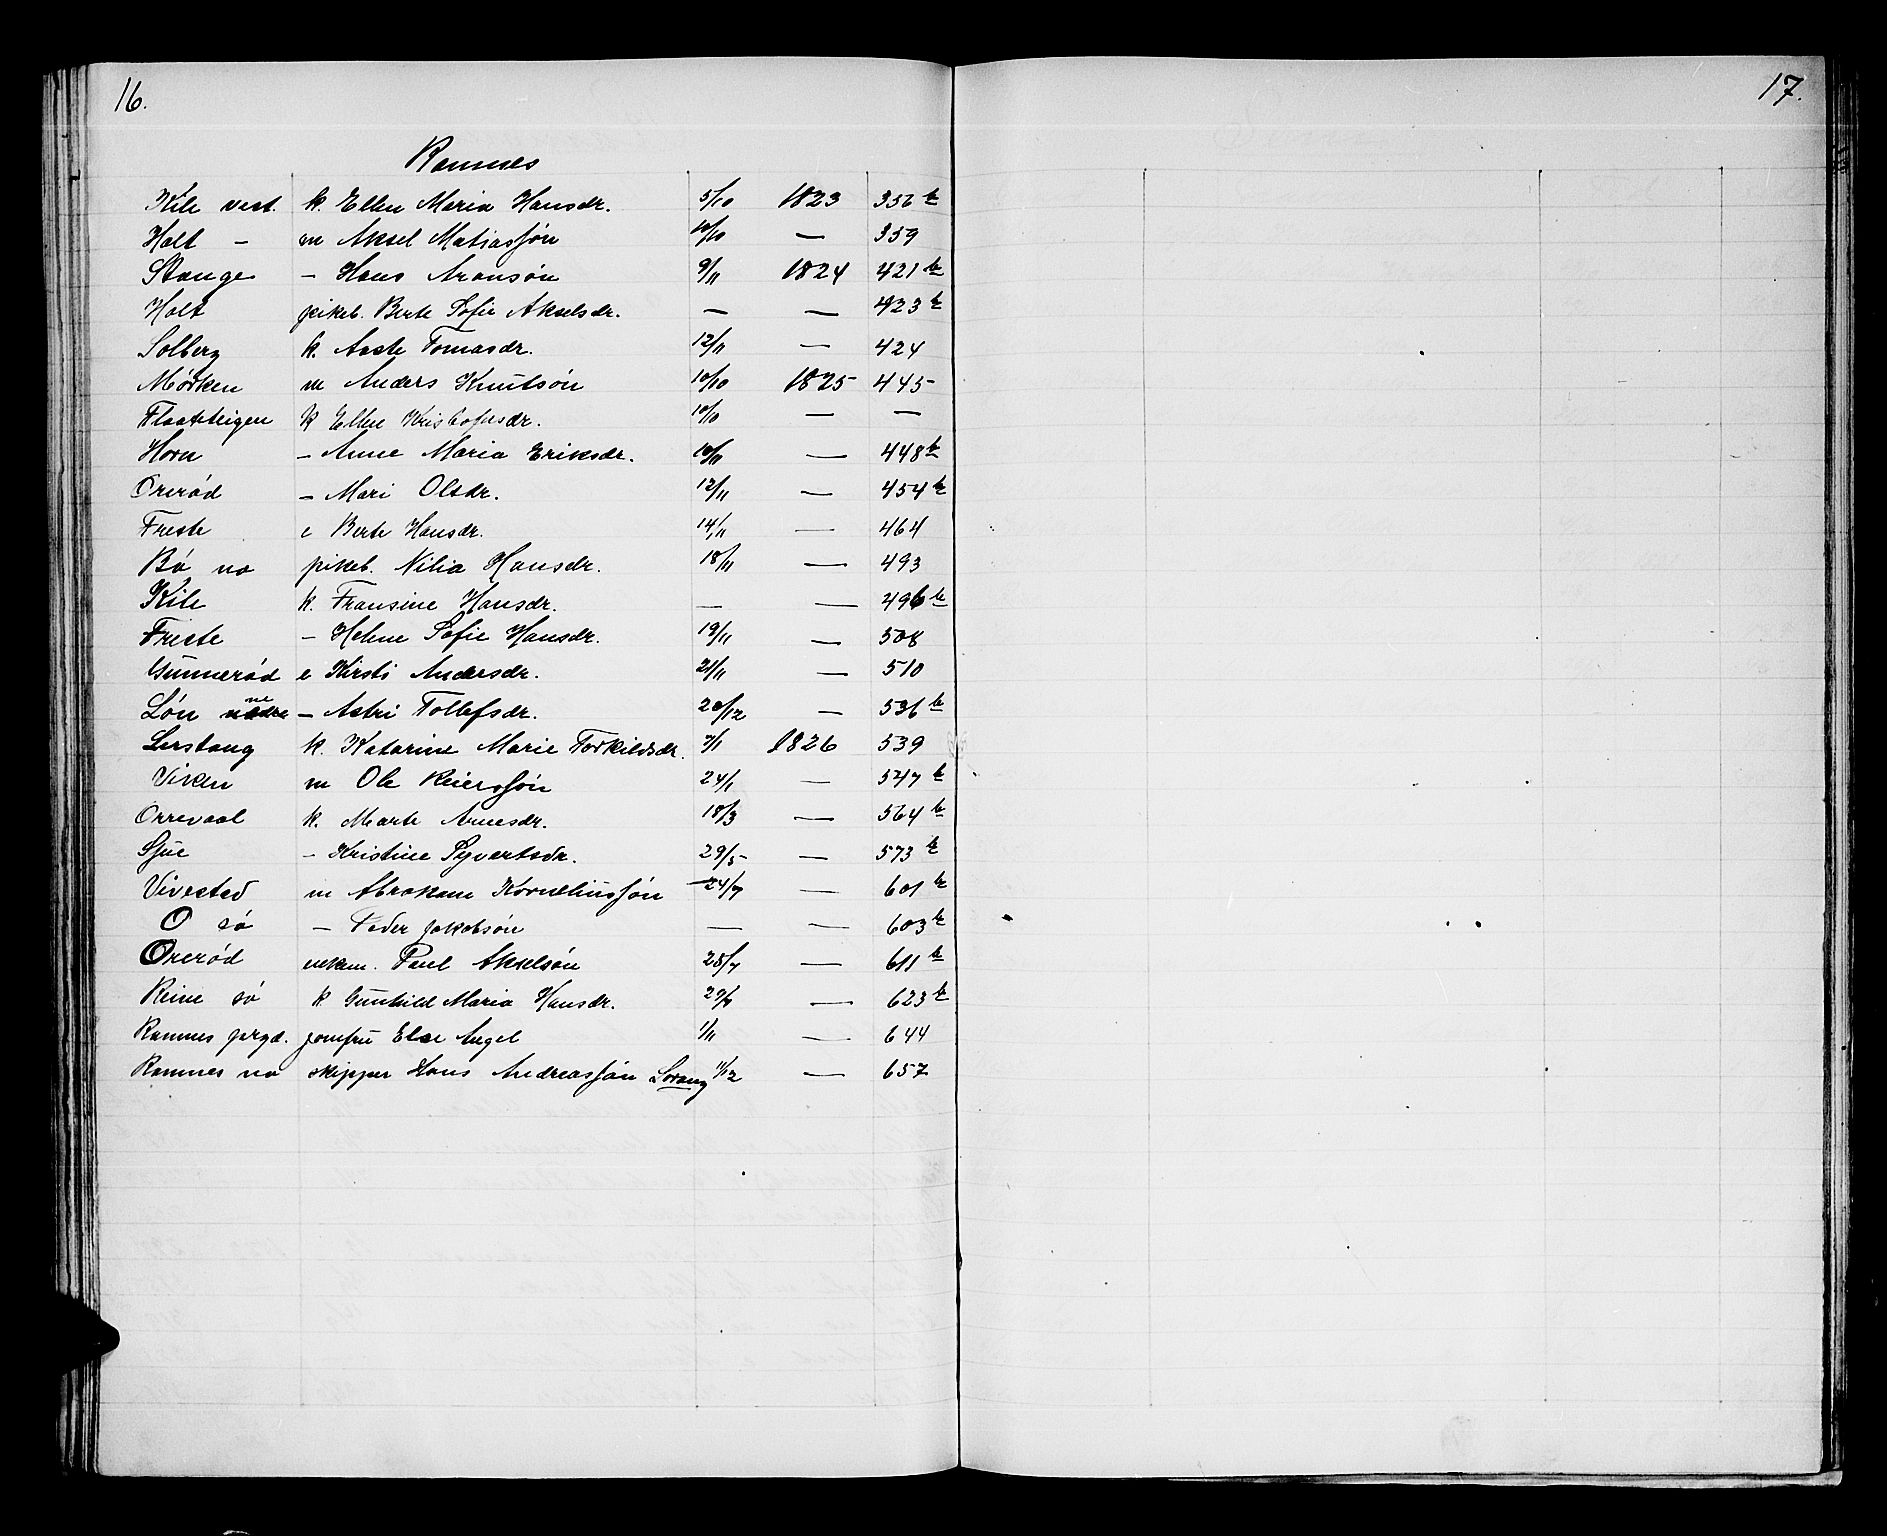 16.
17.
Ramnes
Kile vest. k. Ellen Maria Hansdr. 5/10 1823 356 b
Holt – m Aksel Matiassøn 10/10 — 359
Stange – Hans Aronsøn 9/11 1824 421 b
Holt pikeb. Berte Sofie Akselsdr. — — 423 b
Solberg k. Aaste Tomasdr. 12/11 — 424
Mørken m Anders Knutsøn 10/10 1825 445
Flaatteigen k Ellen Kristofersdr. 10/10 — —
Horn – Anne Maria Eriksdr. 10/11 — 448 b
Orerød – Mari Olsdr. 12/11 — 454 b
Freste e Berte Hansdr. 14/11 — 464
Bø no pikeb. Nilia Hansdr. 18/11 — 493
Kile k. Fransine Hansdr. — — 496 b
Freste – Helene Sofie Hansdr. 19/11 — 508
Gunnerød e Kirsti Andersdr. 21/11 — 510
Løn ne – Astri Tollefsdr. 20/12 — 536 b
Lerstang k. Katarine Marie Torkildsdr. 7/1 1826 539
Viken m Ole Reierssøn 24/1 — 547 b
Orrevaal k. Marte Arnesdr. 18/3 — 564 b
Sjue – Kristine Syvertsdr. 29/5 — 573 b
Vivested m Abraham Korneliussøn 24/7 — 601 b
O sø – Peder Jakobsøn — — 603 b
Orerød enkem. Paul Akselsøn 28/7 — 611 b
Reine sø k Gunhild Maria Hansdr. 29/9 — 623 b
Ramnes prgd. jomfru Else Angel 1/11 — 644
Ramnes no skipper Hans Andreassøn Sørang 11/12 — 657